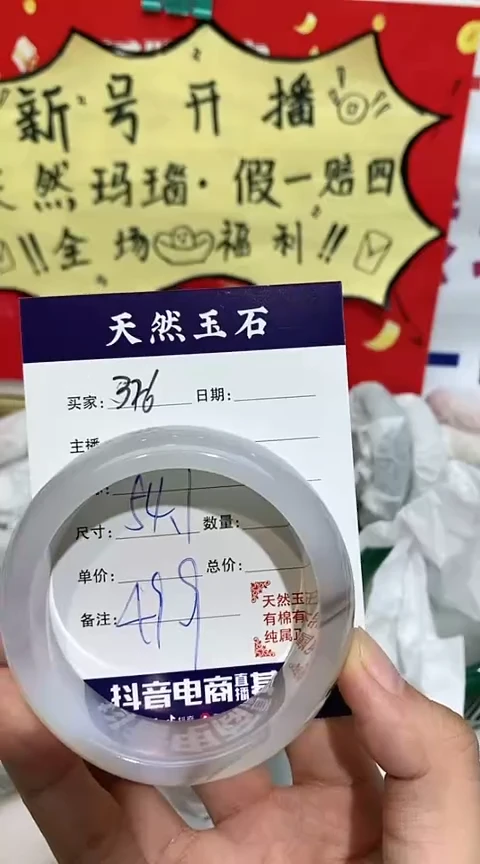 新号开播
天然玛瑙·假一赔四
!!全场福利!!
天然玉石
买家:376 日期:
主播
尺寸:54.1 数量:
单价: 总价:
备注:499
天然玉
有棉有
纯属
抖音电商直播基
抖音